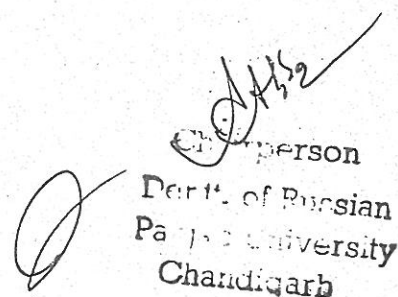 Chairperson
Deptt. of Russian
Panjab University
Chandigarh